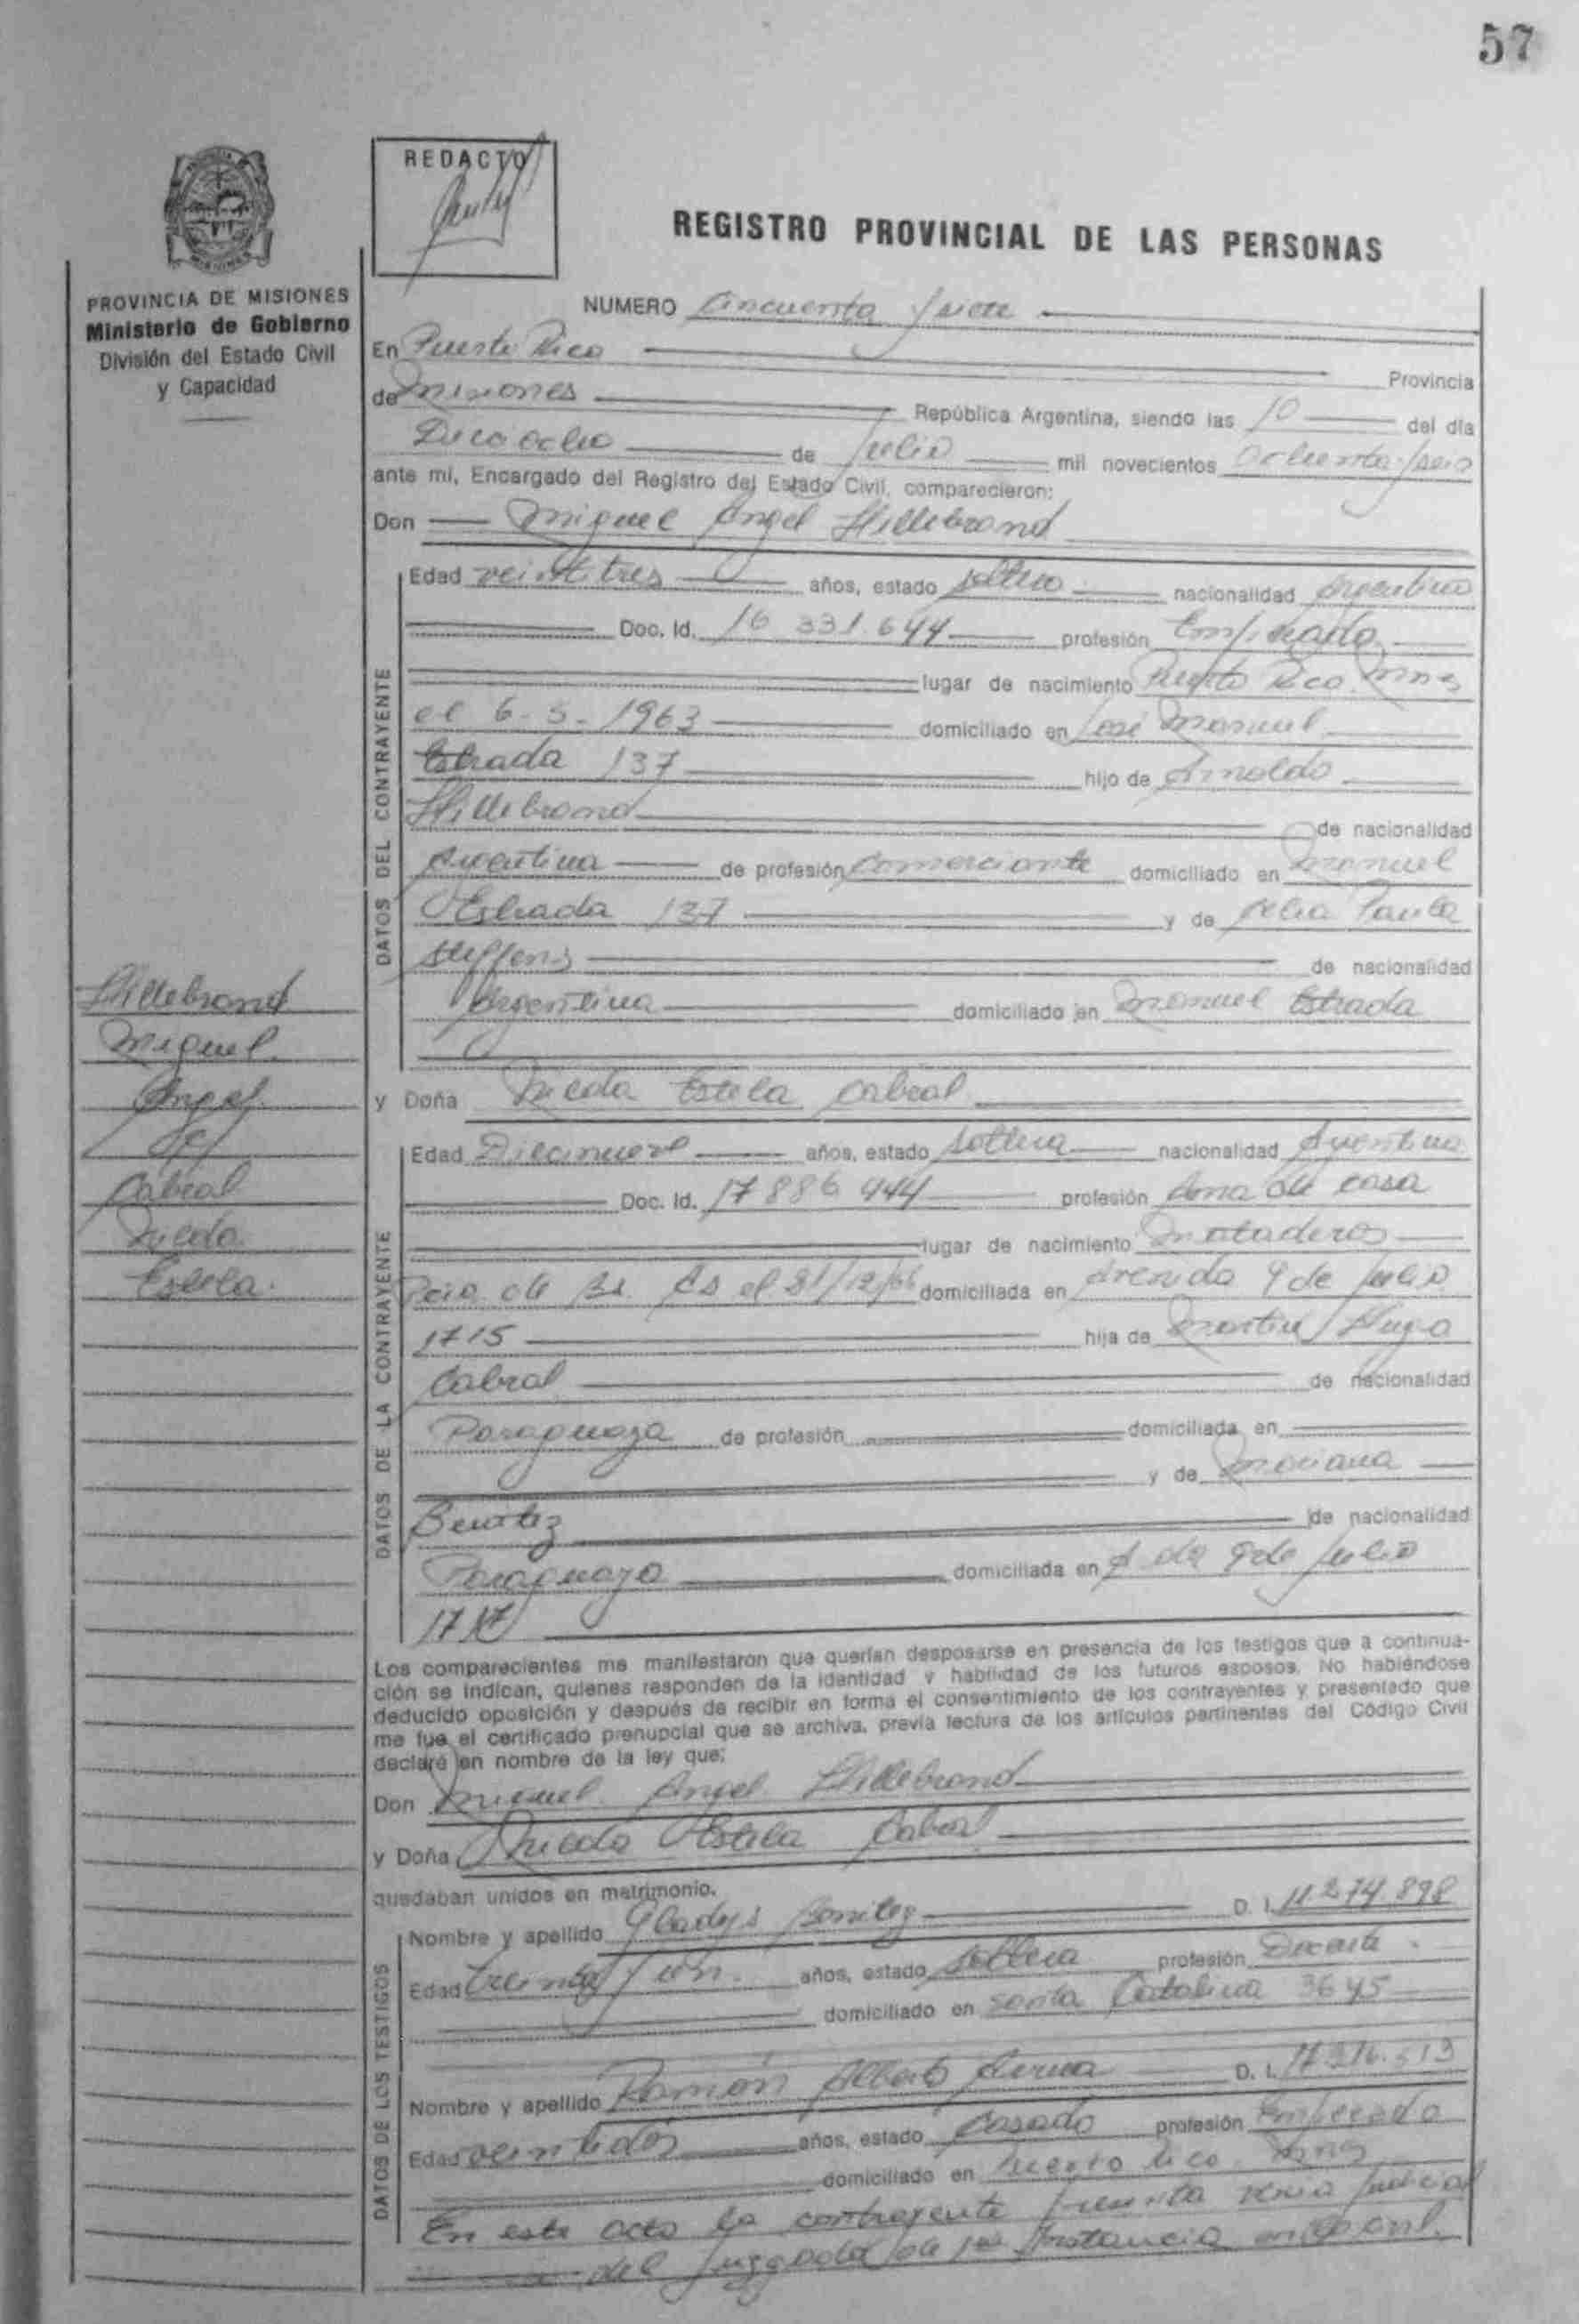 57
REDACTO
REGISTRO PROVINCIAL DE LAS PERSONAS
PROVINCIA DE MISIONES
Ministerio de Gobierno
División del Estado Civil
y Capacidad
NUMERO Cincuenta y siete
En Puerto Rico Provincia
de Misiones República Argentina, siendo las 10 del día
Dieciocho de Julio mil novecientos Ochenta y seis
ante mí, Encargado del Registro del Estado Civil, comparecieron:
Don Miguel Angel Hillebrand
DATOS DEL CONTRAYENTE
Edad veintitres años, estado soltero nacionalidad Argentino
Doc. Id. 16 331.644 profesión Empleado
lugar de nacimiento Puerto Rico Mnes
el 6-5-1963 domiciliado en José Manuel
Estrada 137 hijo de Arnoldo
Hillebrand de nacionalidad
Argentina de profesión Comerciante domiciliado en Manuel
Estrada 137 y de Celia Paula
Steffens de nacionalidad
Argentina domiciliado en Manuel Estrada
Hillebrand
Miguel
Angel
c/
Cabral
Estela.
y Doña Estela Cabral
DATOS DE LA CONTRAYENTE
Edad Diecinueve años, estado soltera nacionalidad Argentina
Doc. Id. 17 886 944 profesión Ama de casa
lugar de nacimiento Mataderos
Pcia. de Bs. As el 31/12/66 domiciliada en Avenida 9 de Julio
1715 hija de Martin Hugo
Cabral de nacionalidad
Paraguaya de profesión domiciliada en
y de Mariana
Benitez de nacionalidad
Paraguaya domiciliada en A da 9 de Julio
Los comparecientes me manifestaron que querían desposarse en presencia de los testigos que a continua-
ción se indican, quienes responden de la identidad y habilidad de los futuros esposos. No habiéndose
deducido oposición y después de recibir en forma el consentimiento de los contrayentes y presentado que
me fue el certificado prenupcial que se archiva, previa lectura de los artículos pertinentes del Código Civil
declaré en nombre de la ley que:
Don Miguel Angel Hillebrand
y Doña Estela Cabral
quedaban unidos en matrimonio.
DATOS DE LOS TESTIGOS
Nombre y apellido Gladys Benitez D. I. 11 274.898
Edad treinta y un años, estado soltera profesión Docente.
domiciliado en Santa Catalina 3645
Nombre y apellido Ramón Alberto D. I. 17.316.513
Edad veintidós años, estado Casado profesión Empleado
domiciliado en Puerto Rico. Mnes
En este acto la contrayente presenta venia judicial
del Juzgado de 1ra Instancia en